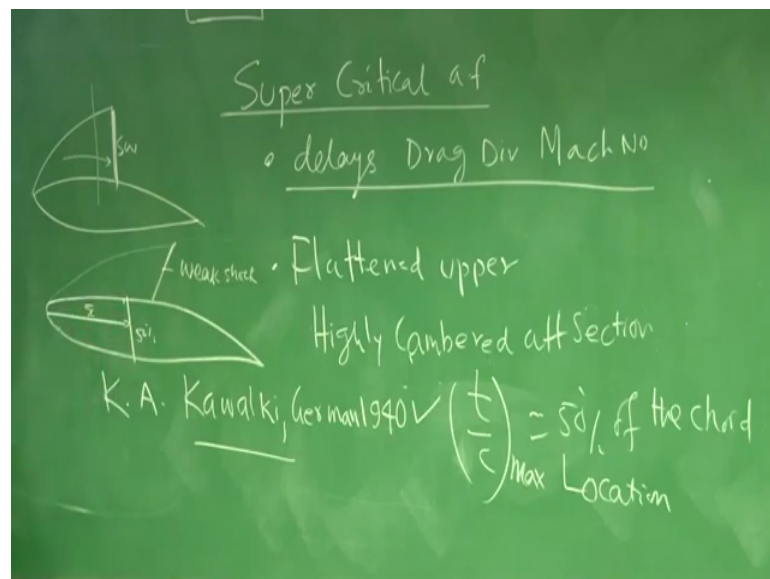 Super Critical af
• delays Drag Div Mach No
SW
weak shock • Flattened upper
50%
Highly Cambered aft Section
K.A. Kawalki, German 1940 ✓ (t/c)max = 50% of the chord
Location